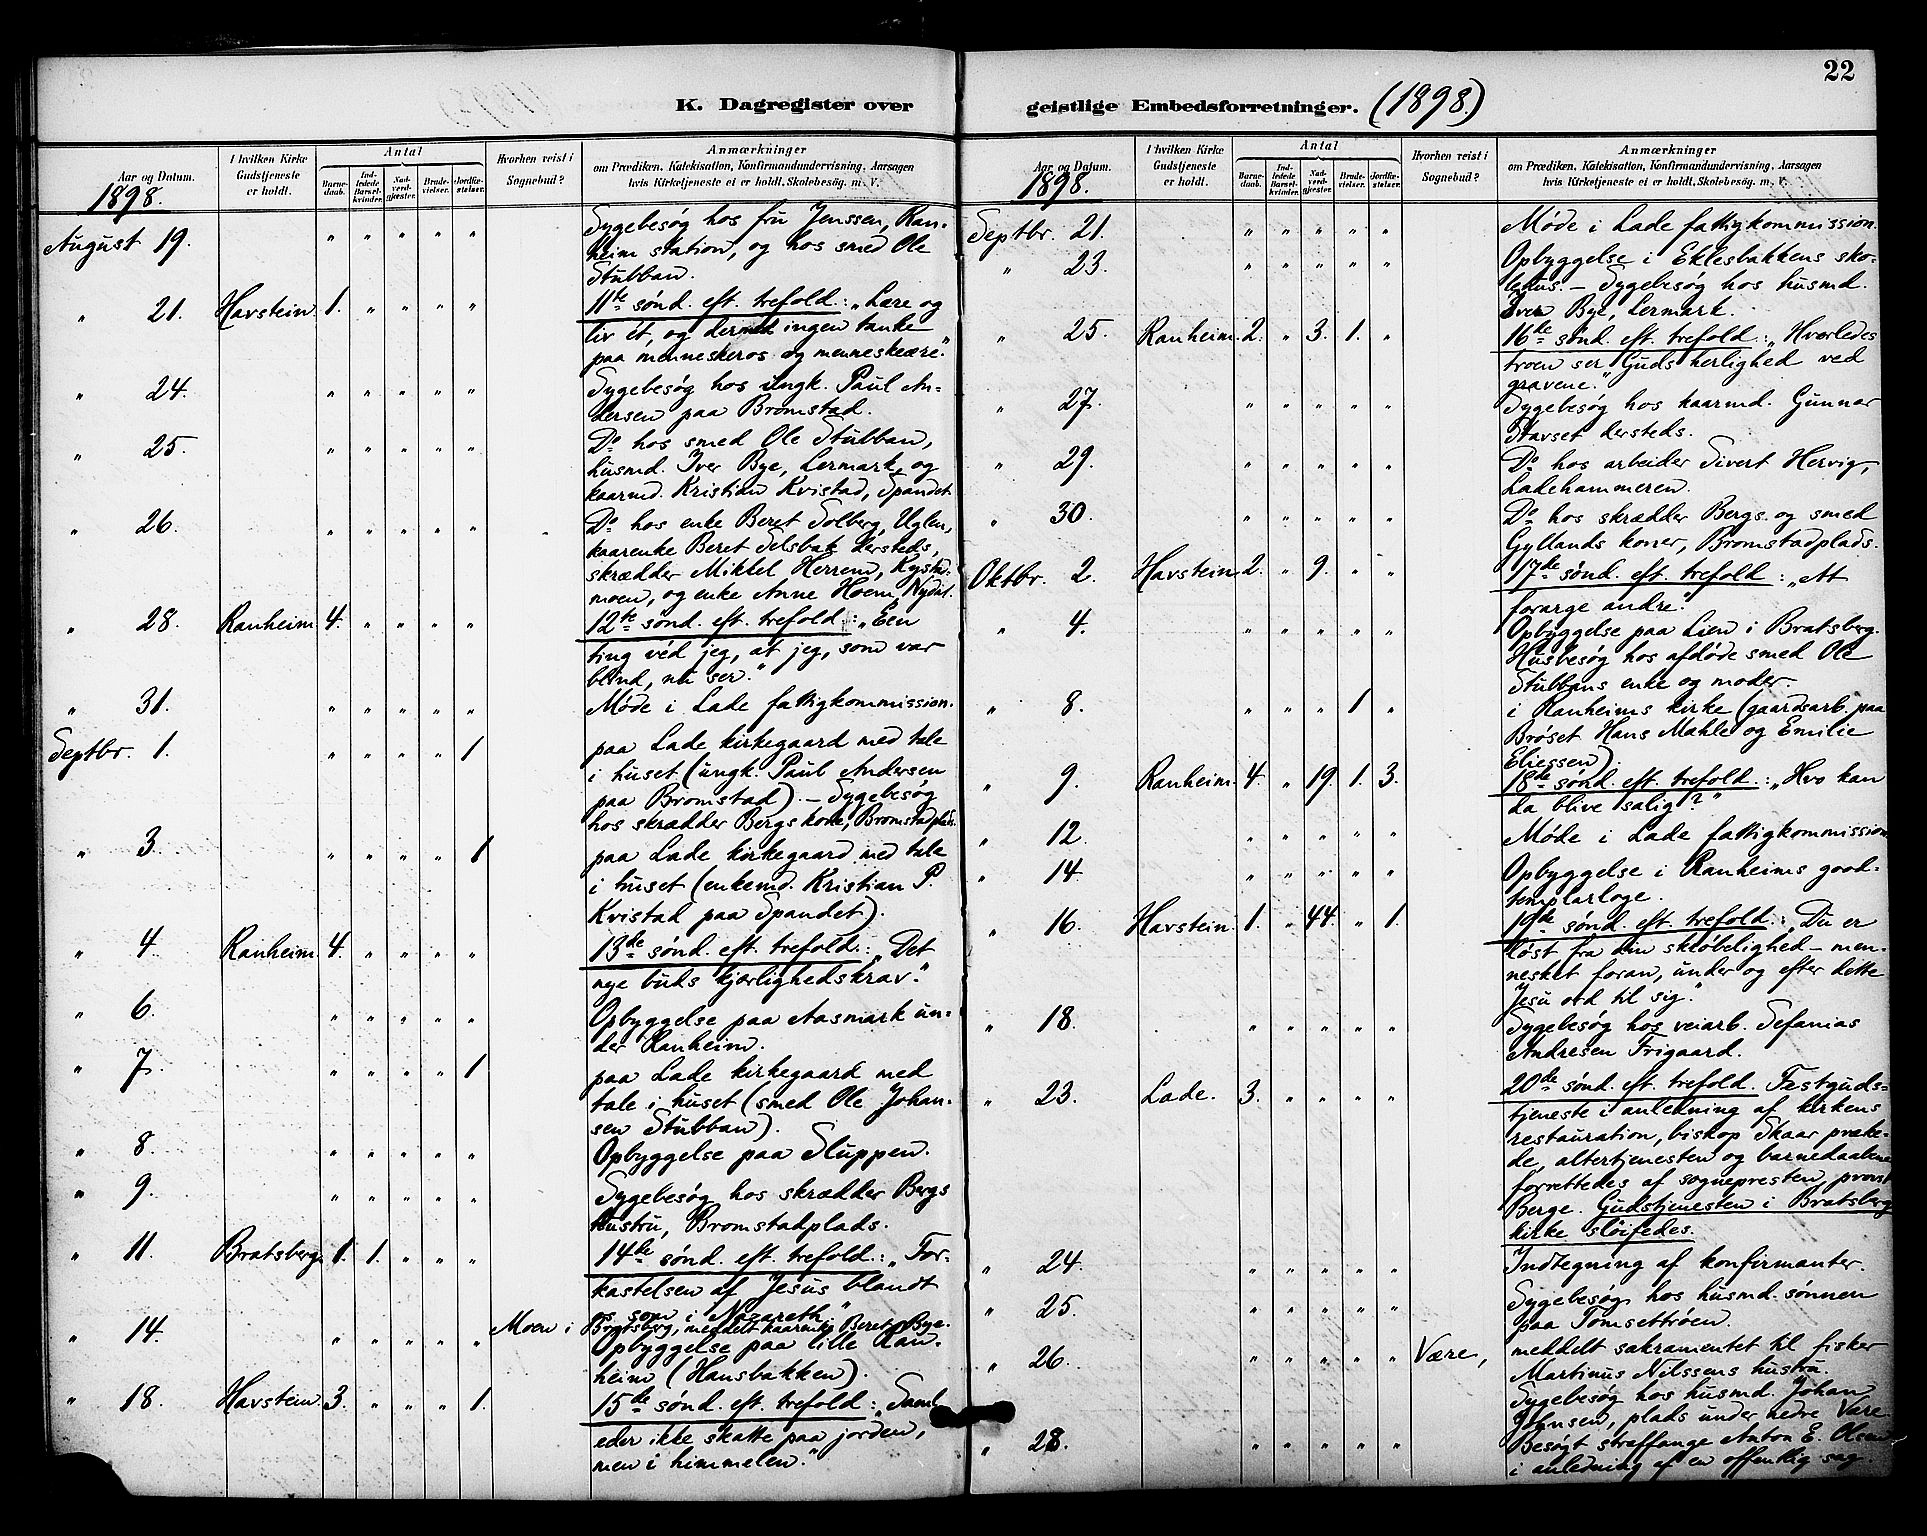 22
K. Dagregister over geistlige Embedsforretninger. (1898.)
Aar og Datum.
I hvilken Kirke Gudstjeneste er holdt.
Antal
Barnedaab.
Indledede Barselkvinder.
Nadverdgjester.
Brudevielser.
Jordfæstelser.
Hvorhen reist i Sognebud?
Anmærkninger
om Prædiken, Katekisation, Konfirmandundervisning, Aarsagen
hvis Kirketjeneste ei er holdt, Skolebesøg, m. V.
1898.
August 19. " " " " " Sygebesøg hos fru Jenssen, Ran-
heim station, og hos smed Ole
Stubban.
" 21. Havstein. 1. " " " " 11te sønd. eft. trefold.: "Lære og
liv ét, og dermed ingen tanke
paa menneskeros og menneskeære."
" 24. " " " " " Sygebesøg hos ungk. Paul An-
dersen paa Bromstad.
" 25. " " " " " Do hos smed Ole Stubban,
husmd. Iver Bye, Lermark, og
kaarmd. Kristian Kvistad, Spandet
" 26. " " " " " Do hos enke Beret Solberg, Uglen,
kaarenke Beret Selsbak dersteds,
skrædder Mikkel Herrem, Kysta-
moen, og enke Anne Hoem, Nydal.
" 28. Ranheim 4. " " " " 12te sønd. eft. trefold.: "Een
ting véd jeg, at jeg, som var
blind, nu ser."
" 31. " " " " " Møde i Lade fattigkommission.
Septbr. 1. " " " " 1 paa Lade kirkegaard med tale
i huset (ungk. Paul Andersen
paa Bromstad). – Sygebesøg
hos skrædder Bergs kone, Bromstadplads.
" 3. " " " " 1 paa Lade kirkegaard med tale
i huset (enkemd. Kristian P.
Kvistad paa Spandet).
" 4. Ranheim. 4. " " " " 13de sønd. eft. trefold.: "Det
nye buds kjærlighedskrav."
" 6. " " " " " Opbyggelse paa Aasmark un-
der Ranheim.
" 7. " " " " 1 paa Lade kirkegaard med
tale i huset (smed Ole Johan-
sen Stubban).
" 8. " " " " " Opbyggelse paa Sluppen.
" 9. " " " " " Sygebesøg hos skrædder Bergs
hustru, Bromstadplads.
" 11. Bratsberg. 1. 1. " " " 14de sønd. eft. trefold.: "For-
kastelsen af Jesus blandt
os som i Nazareth."
" 14. " " " " " Moen i Bratsberg, meddelt kaarenke Beret Bye.
Opbyggelse paa lille Ran-
heim (Hansbakken).
" 18. Havstein. 3. " " " 1. 15de sønd. eft. trefold.: "Saml
eder ikke skatte paa jorden,
men i himmelen."
Aar og Datum.
I hvilken Kirke Gudstjeneste er holdt.
Antal
Barnedaab.
Indledede Barselkvinder.
Nadverdgjester.
Brudevielser.
Jordfæstelser.
Hvorhen reist i Sognebud?
Anmærkninger
om Prædiken, Katekisation, Konfirmandundervisning, Aarsagen
hvis Kirketjeneste ei er holdt, Skolebesøg, m. V.
1898.
Septbr. 21. " " " " " Møde i Lade fattigkommission.
" 23. " " " " " Opbyggelse i Eklesbakkens sko-
lehus – Sygebesøg hos husmd.
Iver Bye, Lermark.
" 25. Ranheim. 2. " 3. 1. " 16de sønd. eft. trefold.: "Hvorledes
troen ser Guds herlighed ved
gravene."
" 27. " " " " " Sygebesøg hos kaarmd. Gunnar
Stavset dersteds.
" 29. " " " " " Do hos arbeider Sivert Hervig,
Ladehammeren.
" 30. " " " " " Do hos skrædder Bergs og smed
Gyllands koner, Bromstadplads.
Oktbr. 2. Havstein 2. " 9. " " 17de sønd. eft. trefold.: "At
forarge andre."
" 4. " " " " " Opbyggelse paa Lien i Bratsberg.
Husbesøg hos afdøde smed Ole
Stubbans enke og moder.
" 8. " " " 1 " i Ranheims kirke (gaardsarb. paa
Brøset Hans Mahle og Emilie
Eliessen).
" 9. Ranheim. 4. " 19. 1. 3. 18de sønd. eft. trefold.: "Hvo kan
da blive salig?"
" 12. " " " " " Møde i Lade fattigkommission
" 14. " " " " " Opbyggelse i Ranheims good-
templarloge.
" 16. Havstein. 1. " 44. " 1. 19de sønd. eft. trefold.: "Du er
løst fra din skrøbelighed – men-
nesket foran, under og efter dette
Jesu ord til sig."
" 18. " " " " " Sygebesøg hos veiarb. Sefanias
Andresen Frigaard.
" 23. Lade. 3. " " " " 20de sønd. eft. trefold. Festguds-
tjeneste i anledning af kirkens
restauration, biskop Skaar præke-
de, altertjenesten og barnedaabene
forrettedes af sognepresten, provst
Berge. Gudstjenesten i Bratsberg
kirke sløifedes.
" 24. " " " " " Indtegning af konfirmanter.
" 25. " " " " " Sygebesøg hos husmd. sønnen
paa Tomsettrøen.
" 26. " " " " " Være, meddelt sakramentet til fisker
Martinus Nilssens hustru.
Sygebesøg hos husmd. Johan
Johnsen, plads under nedre Være
" 28. " " " " " Besøgt straffange Anton E. Olsen
i anledning af en offentlig sag.